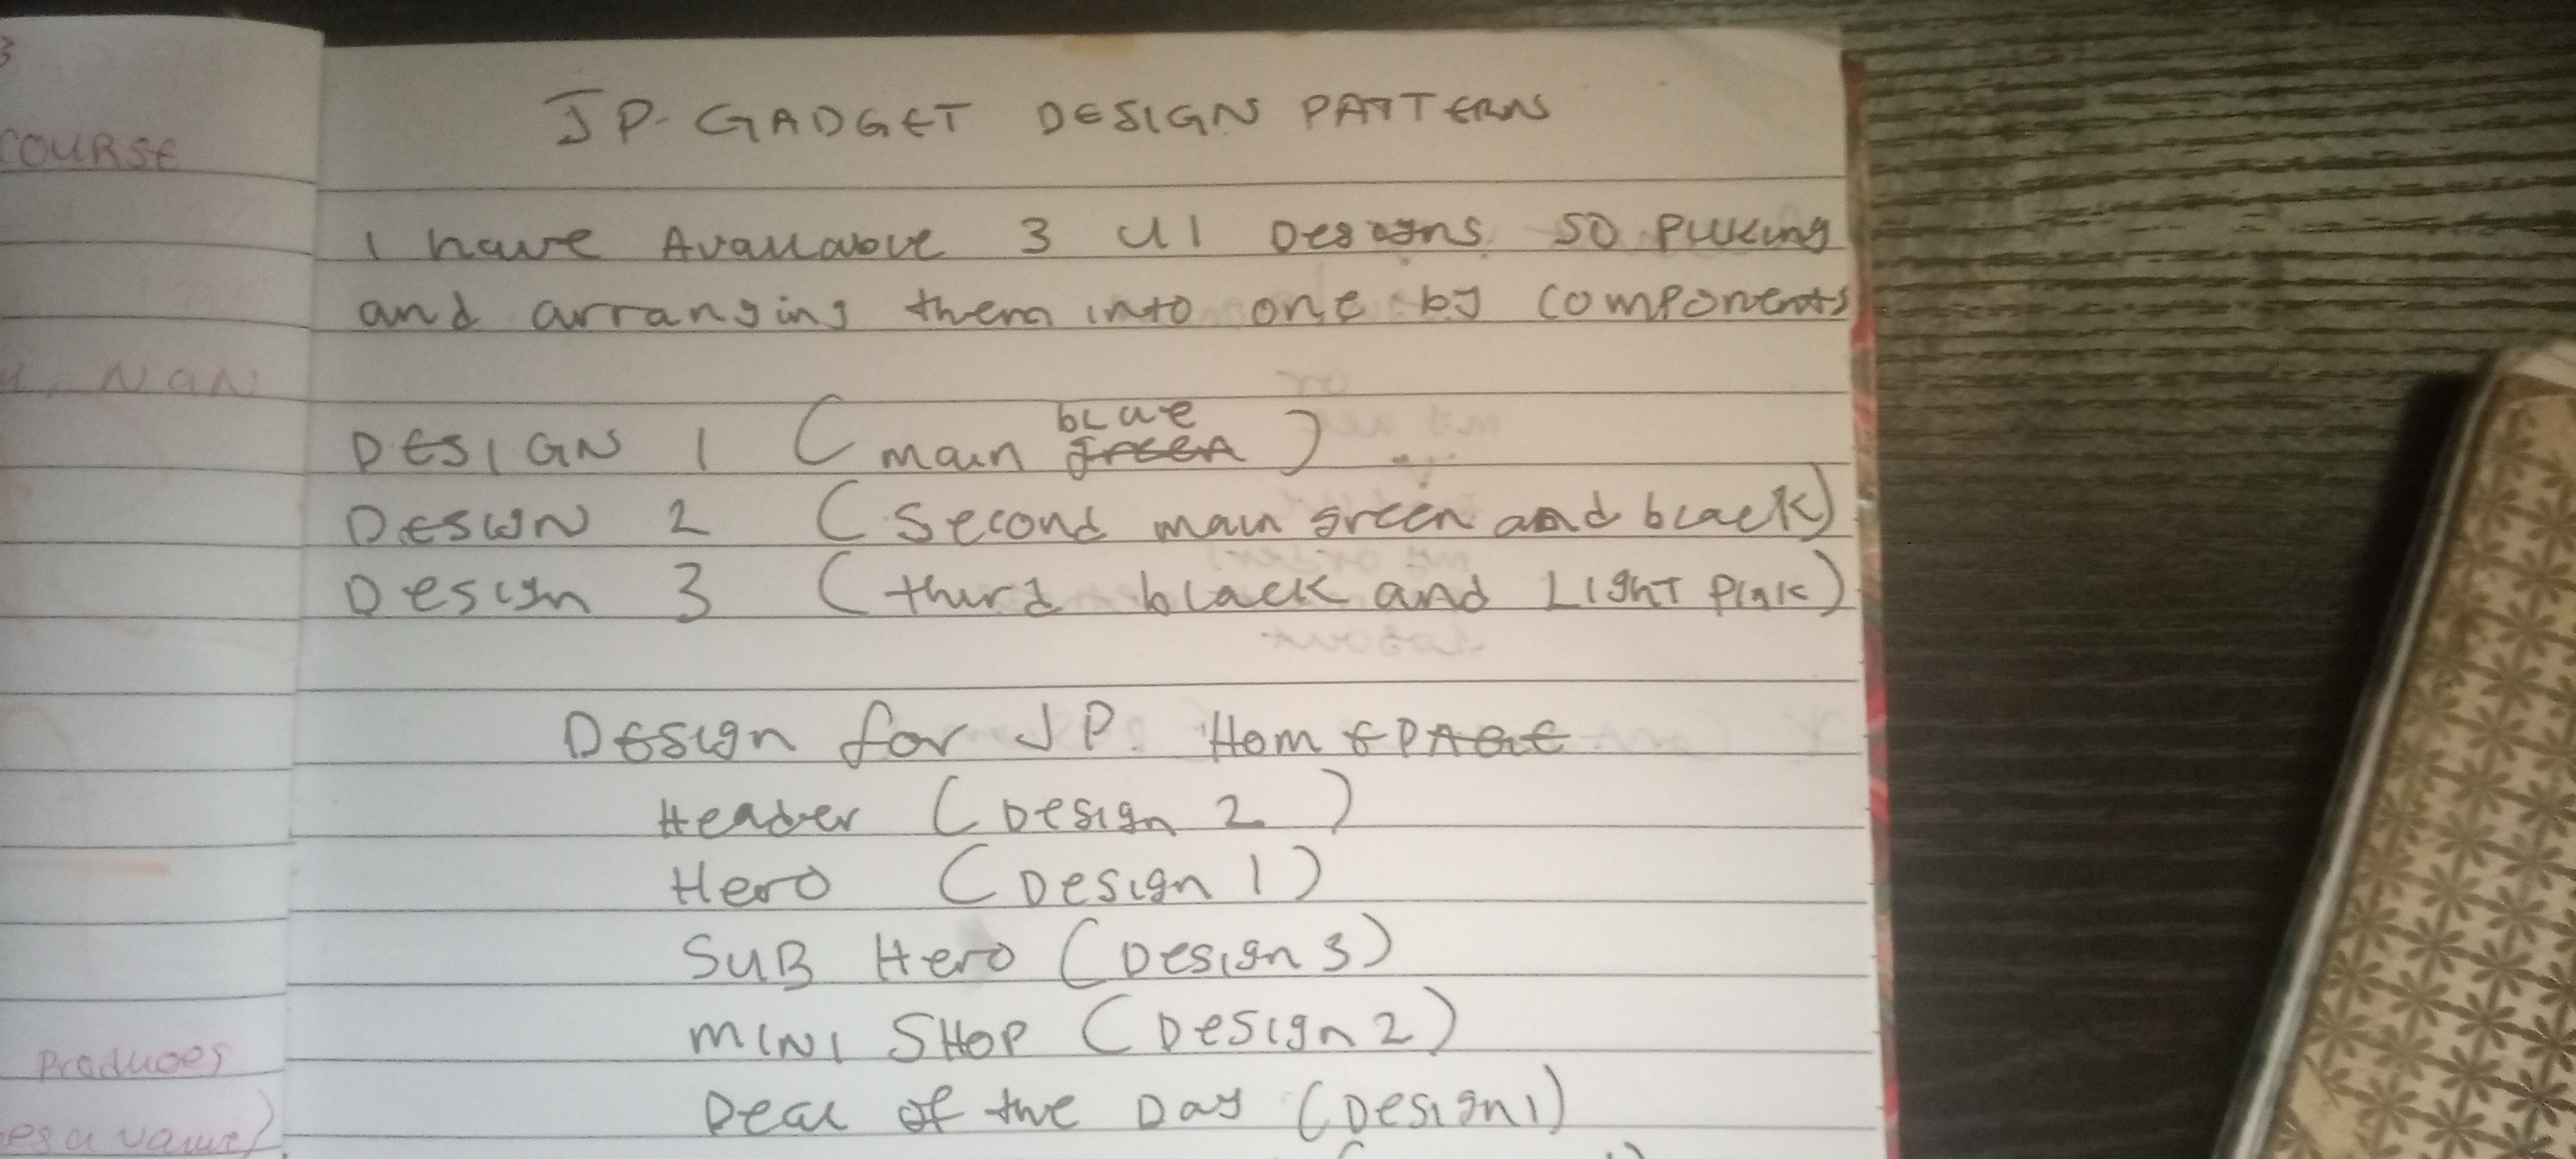 3
COURSE
NaN
Produces
es a value)
JP-GADGET DESIGN PATTERNS
I have Available 3 UI Designs. SO Picking
and arranging them into one by components
DESIGN 1 (main blue green)
DESIGN 2 (Second main green and black)
Design 3 (third black and LIGHT PINK)
Design for JP. HOMEPAGE
Header (Design 2)
Hero (Design 1)
SUB Hero (Design 3)
MINI SHOP (Design 2)
Deal of the Day (Design1)